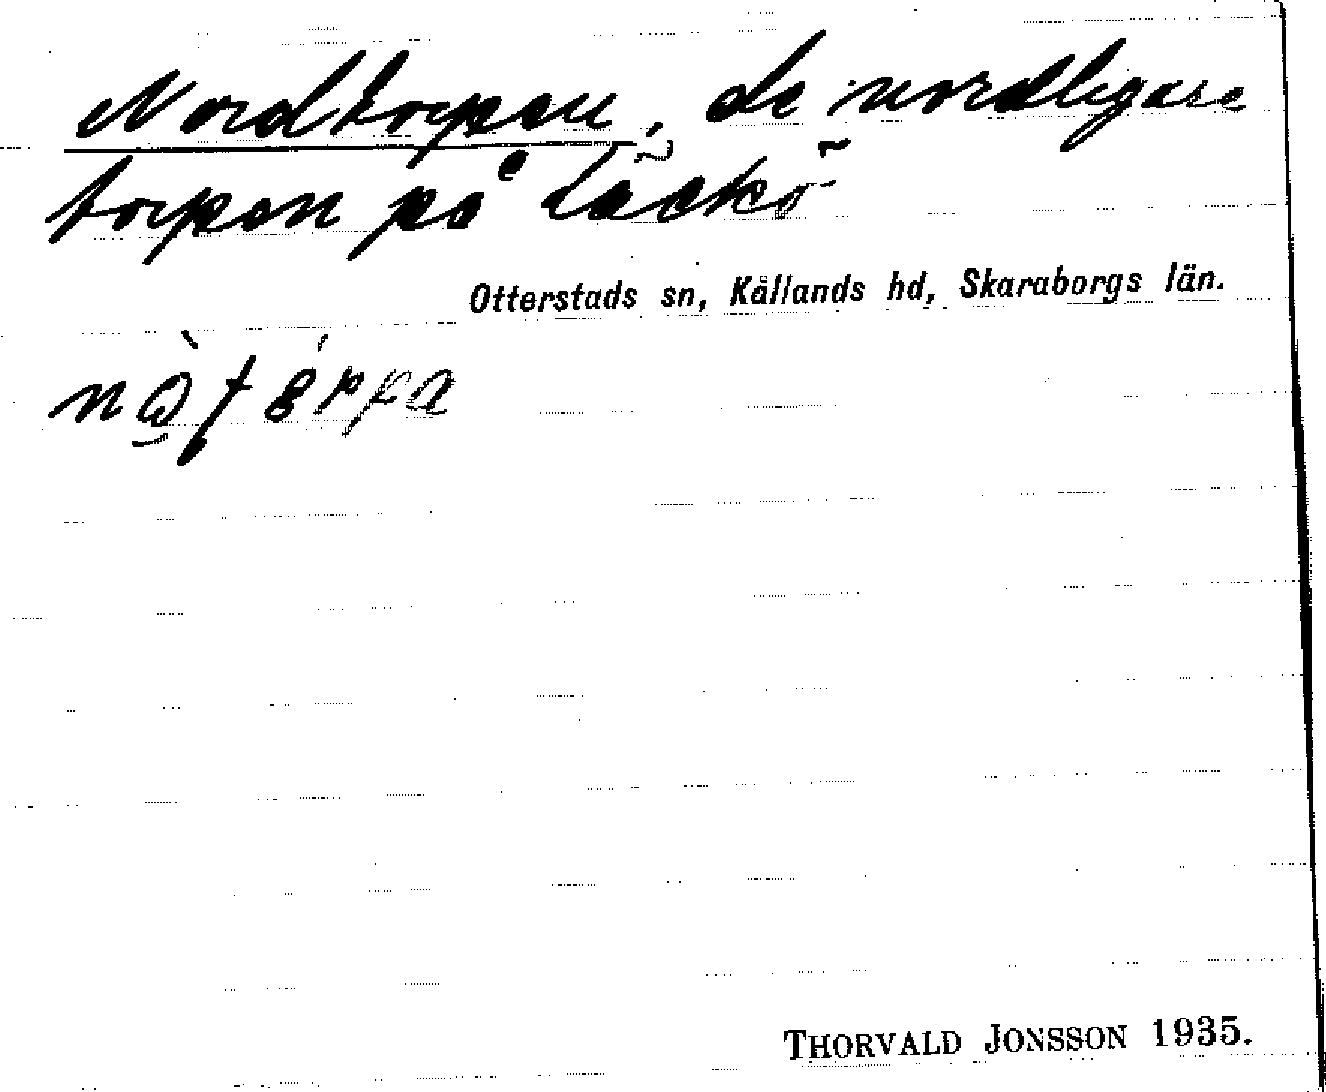 Nordtorpen, de nordligare
torpen på Läckö
Otterstads sn, Kållands hd, Skaraborgs län.
THORVALD JONSSON 1935.